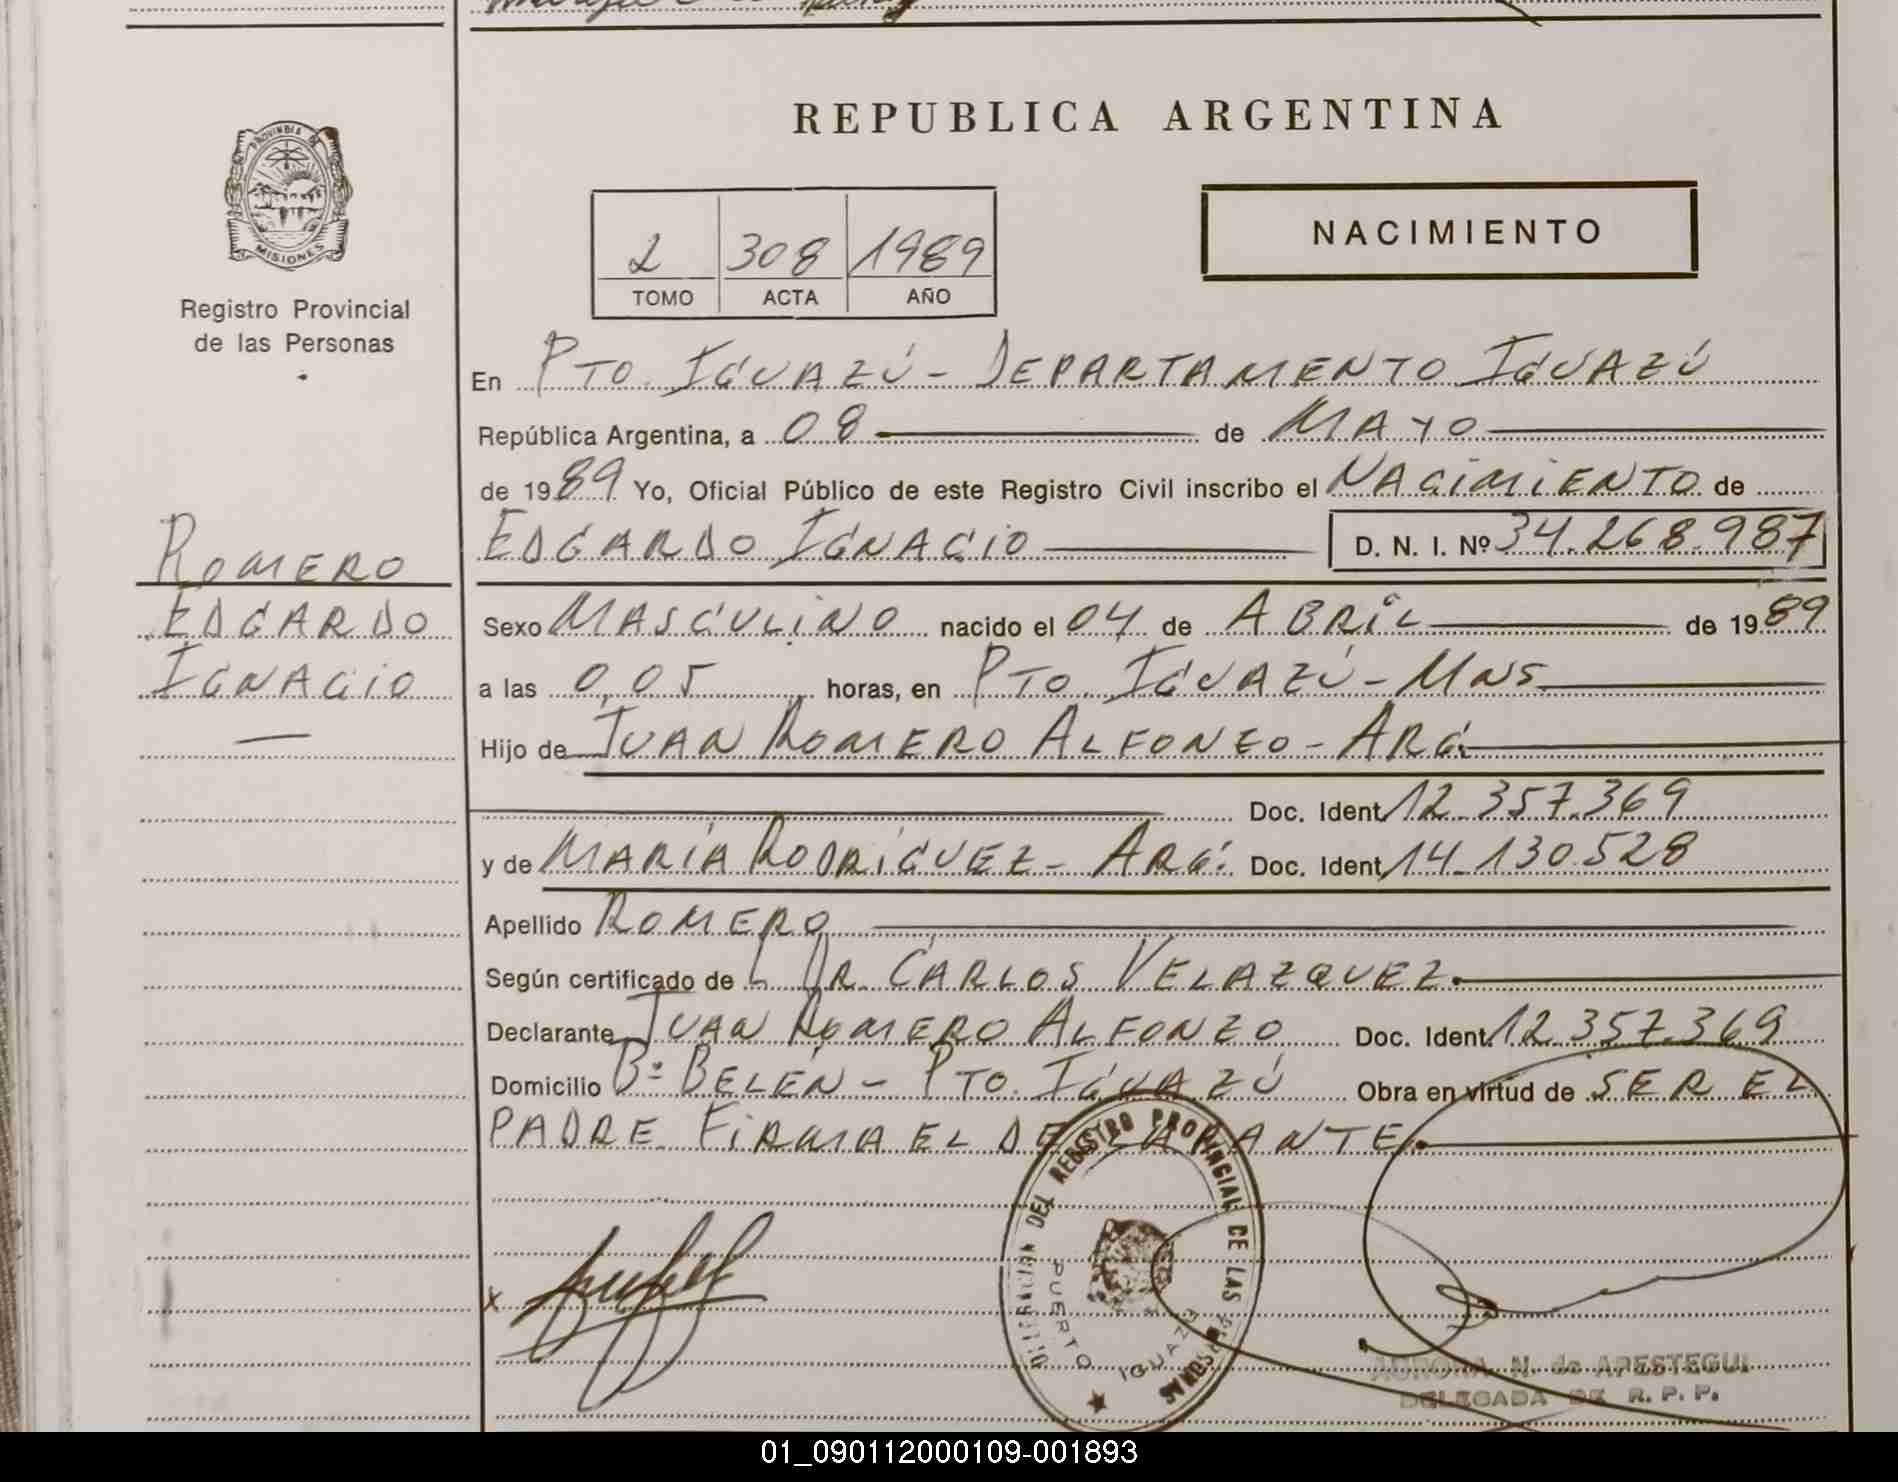 PROVINCIA DE
MISIONES
Registro Provincial
de las Personas
ROMERO
EDGARDO
IGNACIO
REPUBLICA ARGENTINA
2 308 1989
TOMO ACTA AÑO
NACIMIENTO
En PTO. IGUAZÚ - DEPARTAMENTO IGUAZÚ
República Argentina, a 08 de MAYO
de 1989 Yo, Oficial Público de este Registro Civil inscribo el NACIMIENTO de
EDGARDO IGNACIO D. N. I. Nº 34.268.987
Sexo MASCULINO nacido el 04 de ABRIL de 1989
a las 0,05 horas, en PTO. IGUAZÚ - MNS
Hijo de JUAN ROMERO ALFONZO - ARG.
Doc. Ident. 12.357.369
y de MARÍA RODRÍGUEZ - ARG. Doc. Ident. 14.130.528
Apellido ROMERO
Según certificado de DR. CARLOS VELAZQUEZ.
Declarante JUAN ROMERO ALFONZO Doc. Ident. 12.357.369
Domicilio Bº BELÉN - PTO. IGUAZÚ Obra en virtud de SER EL
PADRE FIRMA EL DECLARANTE.
X
DELEGACION DEL REGISTRO PROVINCIAL DE LAS PERSONAS
PUERTO IGUAZU
AURORA N. de APESTEGUI
DELEGADA DE R. P. P.
01_090112000109-001893